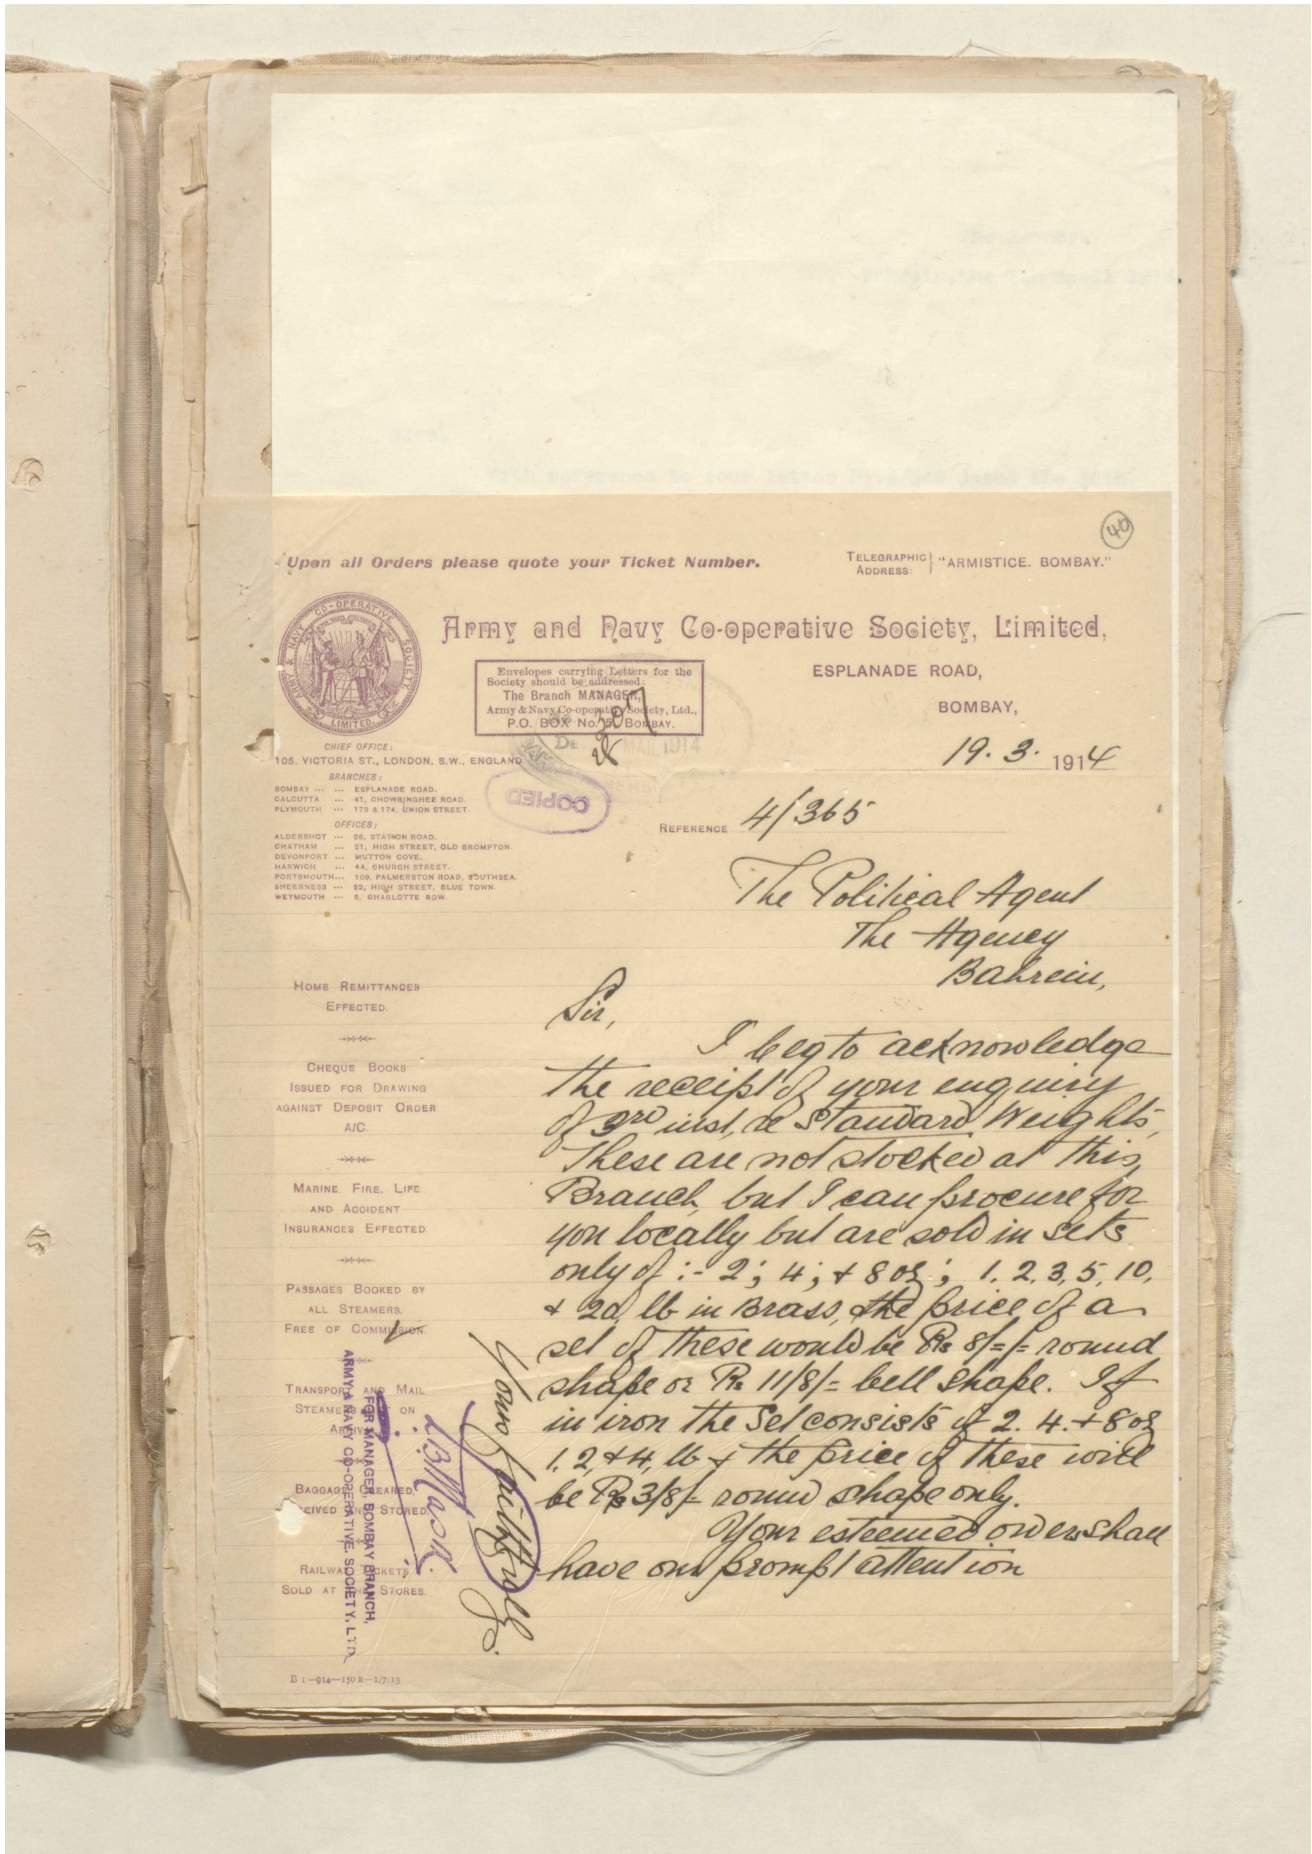 40
Upon all Orders please quote your Ticket Number.
TELEGRAPHIC ADDRESS: } "ARMISTICE. BOMBAY."
ARMY & NAVY CO-OPERATIVE SOCIETY LIMITED
Army and Navy Co-operative Society, Limited,
ESPLANADE ROAD,
BOMBAY,
Envelopes carrying Letters for the
Society should be addressed:
The Branch MANAGER,
Army & Navy Co-operative Society, Ltd.,
P.O. BOX No. 5, BOMBAY.
307
MAR 1914
COPIED
19. 3. 1914
CHIEF OFFICE:
105, VICTORIA ST., LONDON, S.W., ENGLAND
BRANCHES:
BOMBAY ... ... ESPLANADE ROAD.
CALCUTTA ... 41, CHOWRINGHEE ROAD.
PLYMOUTH ... 173 & 174, UNION STREET.
OFFICES:
ALDERSHOT ... 26, STATION ROAD.
CHATHAM ... 21, HIGH STREET, OLD BROMPTON.
DEVONPORT ... MUTTON COVE.
HARWICH ... 44, CHURCH STREET.
PORTSMOUTH... 109, PALMERSTON ROAD, SOUTHSEA.
SHEERNESS ... 22, HIGH STREET, BLUE TOWN.
WEYMOUTH ... 6, CHARLOTTE ROW.
REFERENCE 4/365
The Political Agent
The Agency
Bahrein,
Sir,
I beg to acknowledge
the receipt of your enquiry
of 3rd inst, re Standard Weights,
These are not stocked at this,
Branch, but I can procure for
you locally but are sold in sets
only of :- 2; 4; + 8 oz; 1. 2, 3, 5, 10,
+ 20, lb in Brass, the price of a
set of these would be Rs 8/=/= round
shape or Rs 11/8/= bell shape. If
in iron the Set consists of 2. 4. + 8 oz
1. 2, + 4, lb + the price of these will
be Rs 3/8/- round shape only.
Your esteemed orders shall
have our prompt attention
Yours faithfully
FOR MANAGER, BOMBAY BRANCH,
ARMY & NAVY CO-OPERATIVE. SOCIETY, LTD.
HOME REMITTANCES
EFFECTED.
CHEQUE BOOKS
ISSUED FOR DRAWING
AGAINST DEPOSIT ORDER
A/C.
MARINE. FIRE. LIFE
AND ACCIDENT
INSURANCES EFFECTED.
PASSAGES BOOKED BY
ALL STEAMERS.
FREE OF COMMISSION.
TRANSPORT AND MAIL
STEAMERS MET ON
ARRIVAL.
BAGGAGE CLEARED,
RECEIVED AND STORED.
RAILWAY TICKETS
SOLD AT THE STORES.
B 1—914—150 R—1/7/13